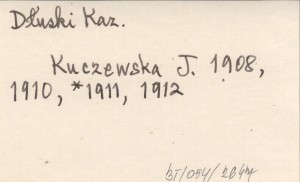 Dłuski Kaz.
Kuczewska J. 1908,
1910, *1911, 1912
BI/054/2647